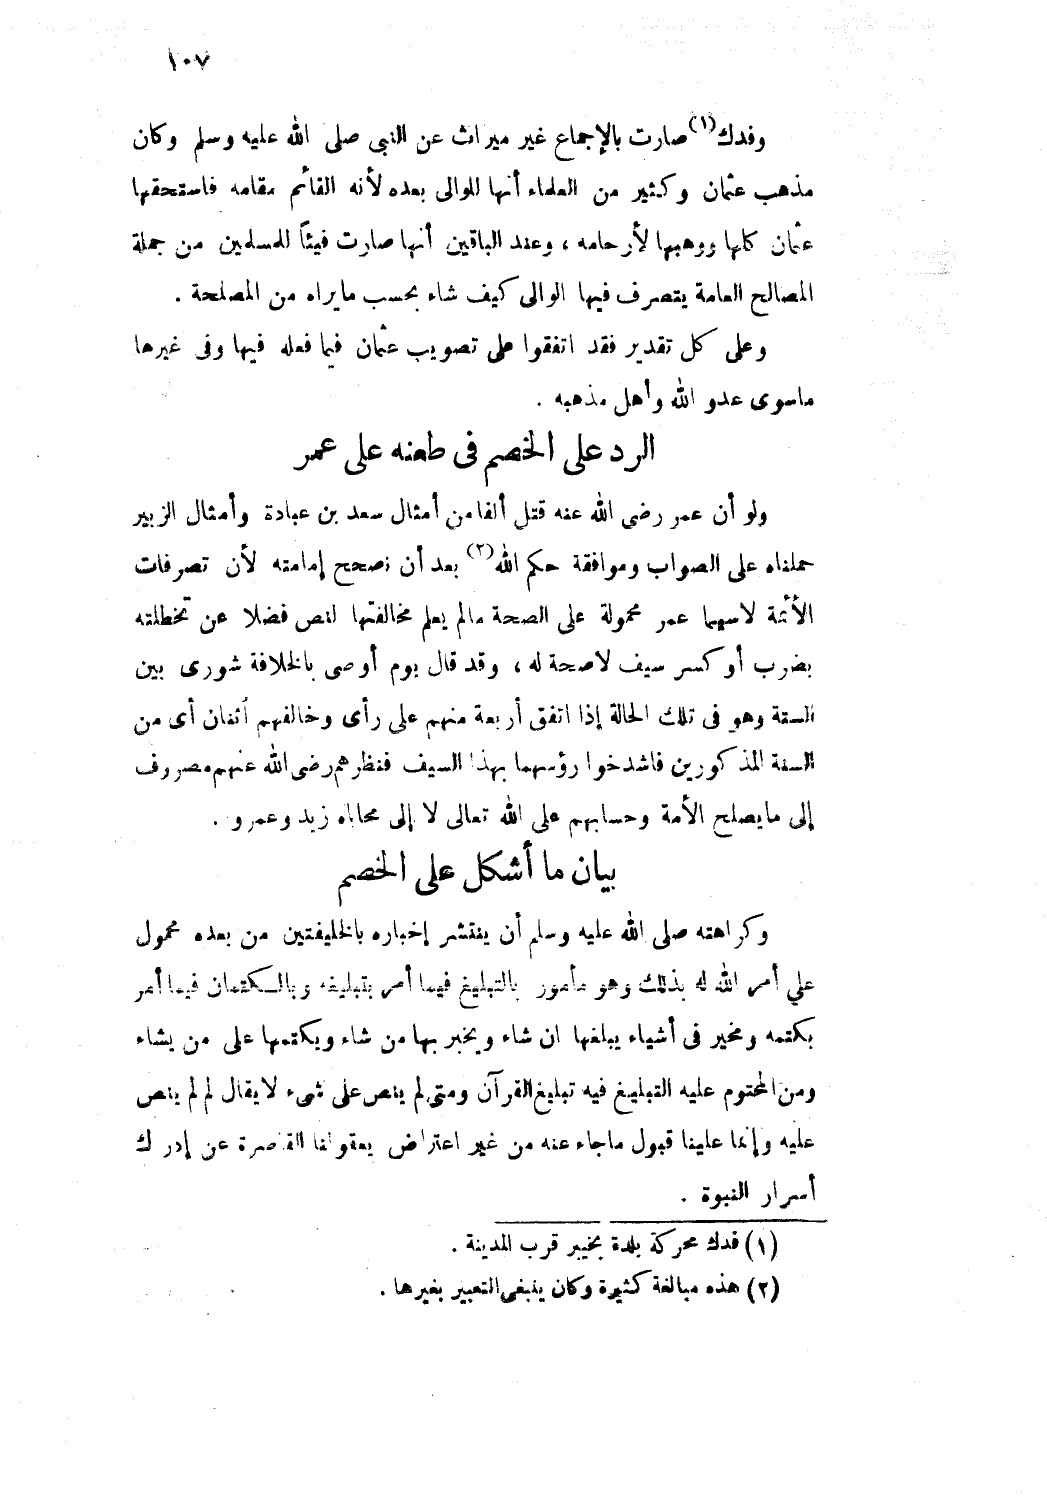 ١٠٧
وفدك(١) صارت بالإجماع غير ميراث عن النبى صلى الله عليه وسلم وكان
مذهب عثمان وكثير من العلماء أنها للوالى بعده لأنه القائم مقامه فاستحقها
عثمان كلها ووهبها لأرحامه ، وعند الباقين أنها صارت فيئاً للمسلمين من جملة
المصالح العامة يتصرف فيها الوالى كيف شاء بحسب مايراه من المصلحة .
وعلى كل تقدير فقد اتفقوا على تصويب عثمان فيما فعله فيها وفى غيرها
ماسوى عدو الله وأهل مذهبه .
الرد على الخصم فى طعنه على عمر
ولو أن عمر رضى الله عنه قتل ألفا من أمثال سعد بن عبادة وأمثال الزبير
حملناه على الصواب وموافقة حكم الله(٢) بعد أن نصحح إمامته لأن تصرفات
الأئمة لاسيما عمر محمولة على الصحة مالم يعلم مخالفتها لنص فضلا عن تخطئته
بضرب أو كسر سيف لاصحة له ، وقد قال يوم أوصى بالخلافة شورى بين
الستة وهو فى تلك الحالة إذا اتفق أربعة منهم على رأى وخالفهم أثنان أى من
الستة المذكورين فاشدخوا رؤسهما بهذا السيف فنظرهم رضى الله عنهم مصروف
إلى مايصلح الأمة وحسابهم على الله تعالى لا إلى محاباه زيد وعمرو .
بيان ما أشكل على الخصم
وكراهته صلى الله عليه وسلم أن ينتشر إخباره بالخليفتين من بعده محمول
على أمر الله له بذلك وهو مأمور بالتبليغ فيما أمر بتبليغه وبالكتمان فيما أمر
بكتمه ومخير فى أشياء يبلغها ان شاء ويخبر بها من شاء ويكتمها على من يشاء
ومن المحتوم عليه التبليغ فيه تبليغ القرآن ومتى لم ينص على شىء لا يقال لم لم ينص
عليه وإنما علينا قبول ماجاء عنه من غير اعتراض بعقولنا القاصرة عن إدراك
أسرار النبوة .
(١) فدك محركة بلدة بخيبر قرب المدينة .
(٢) هذه مبالغة كثيرة وكان ينبغى التعبير بغيرها .